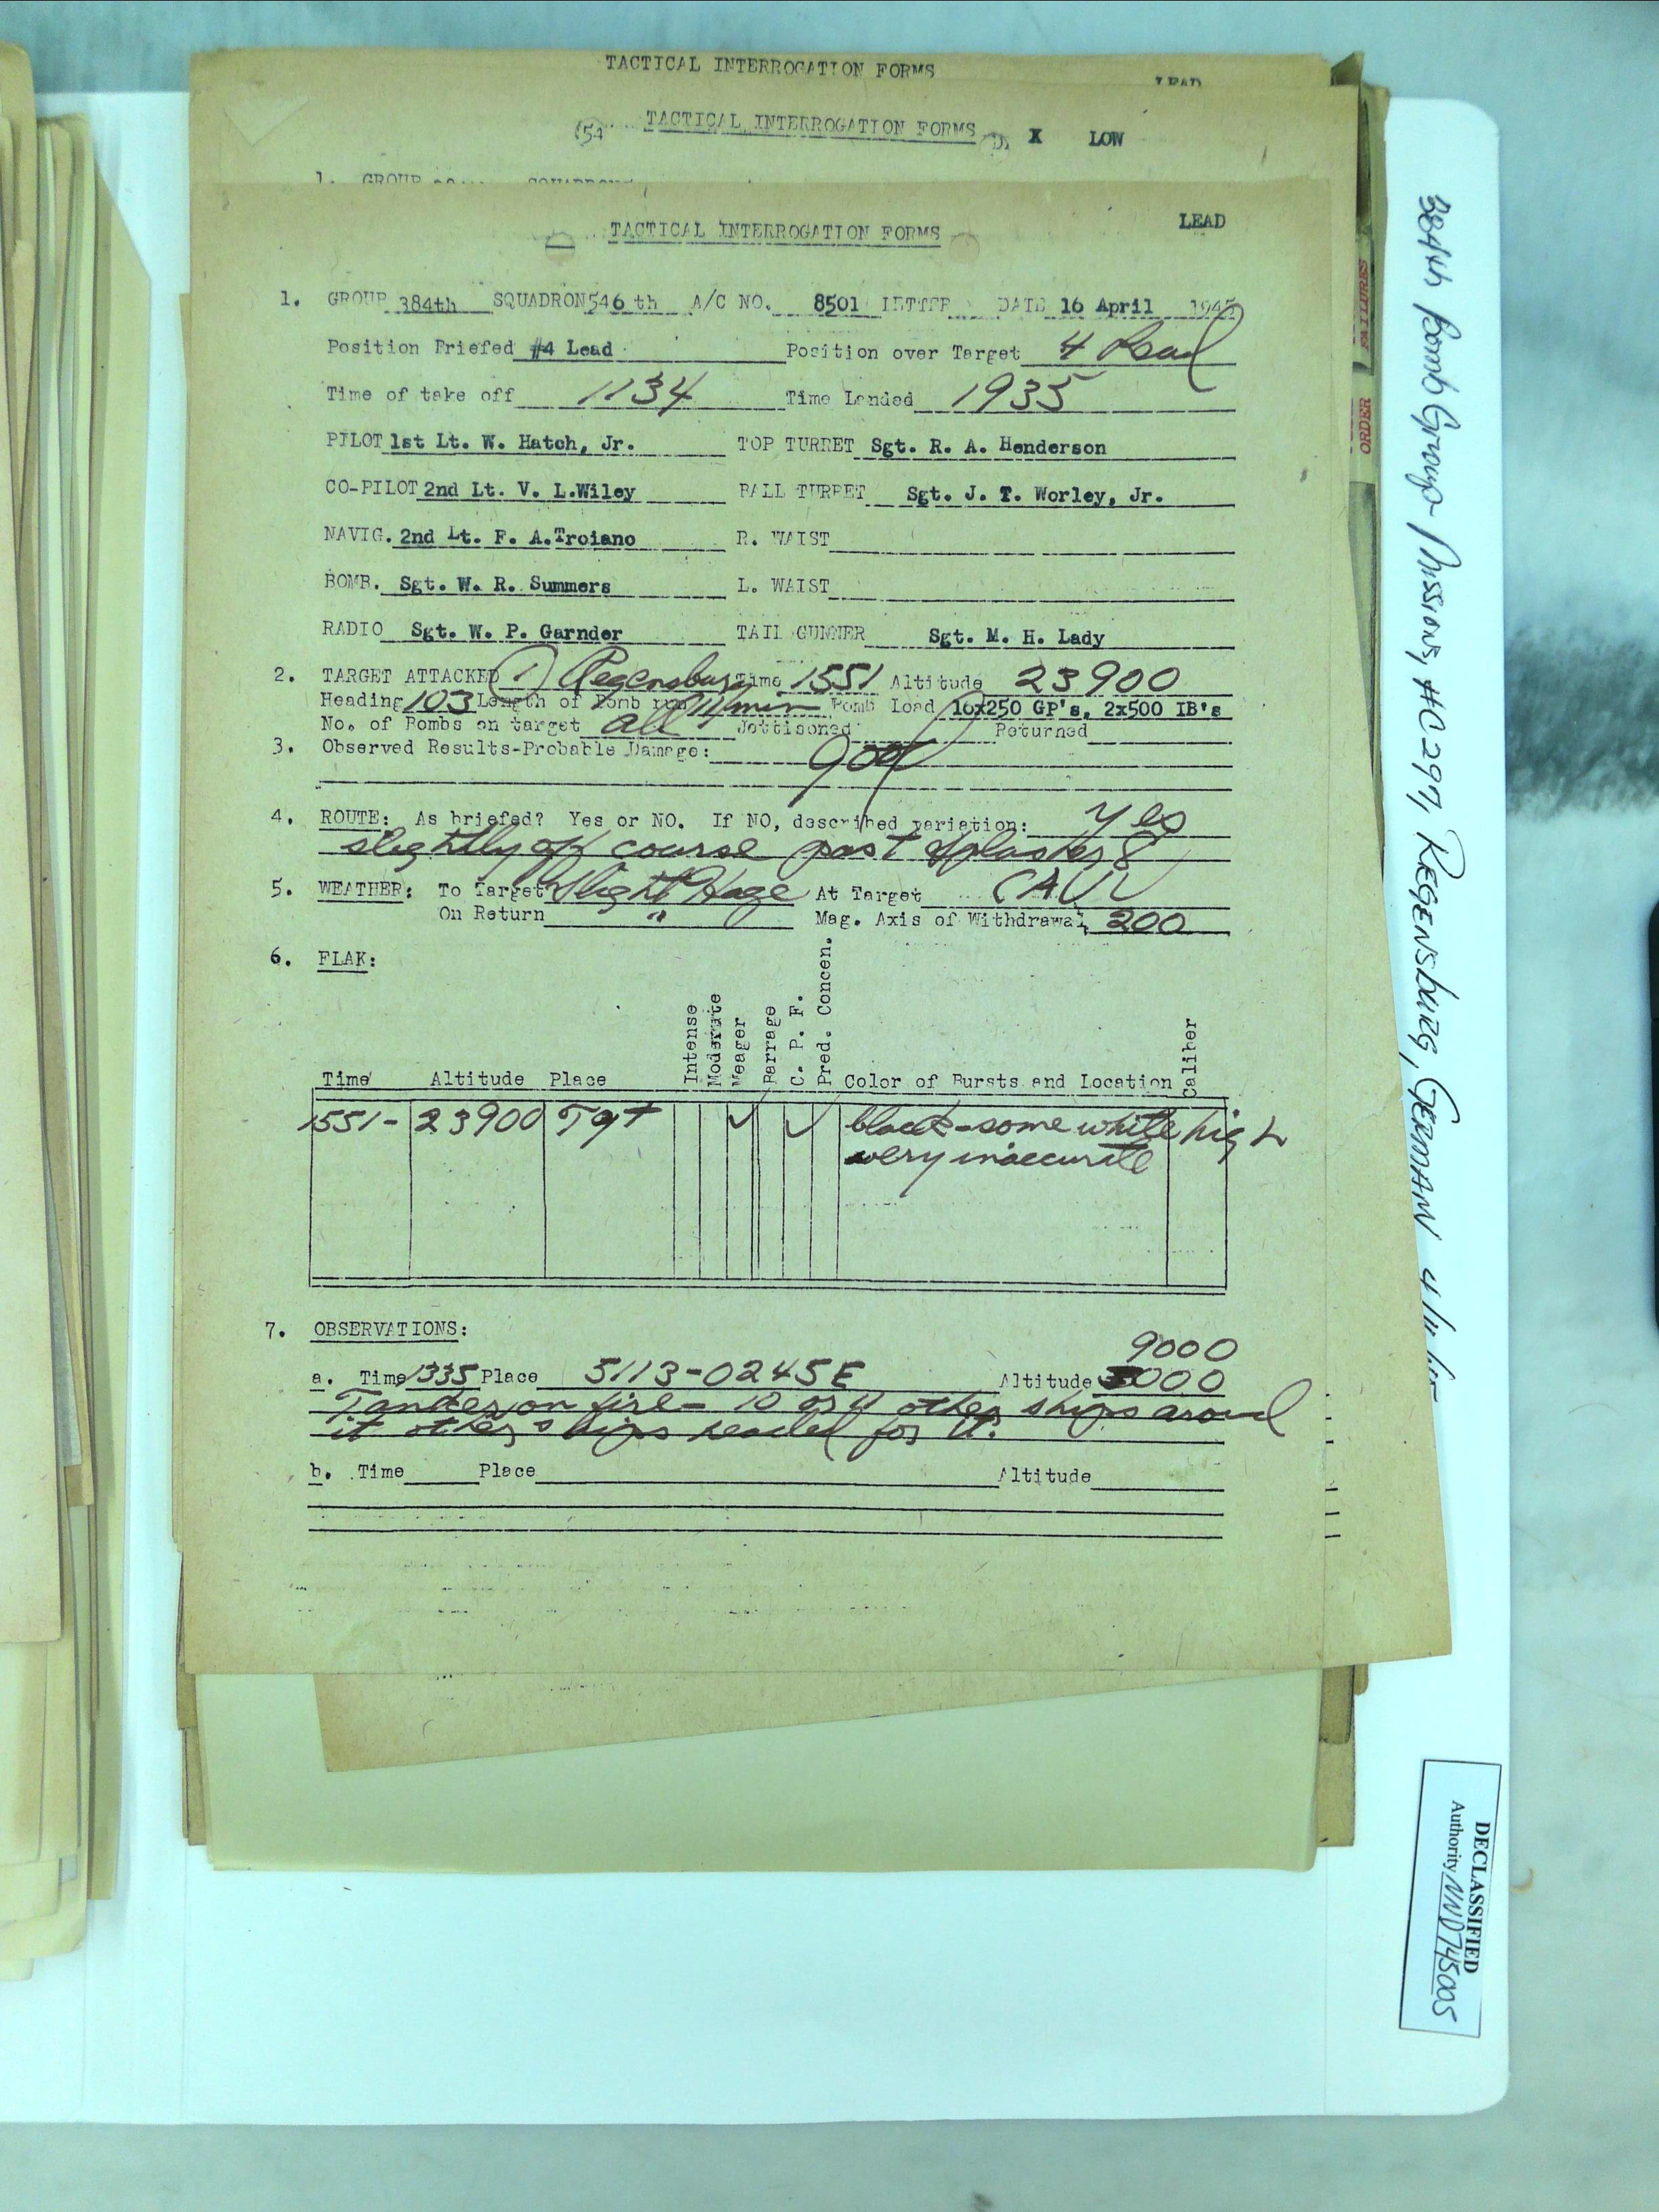 TACTICAL INTERROGATION FORMS
LEAD
(54 TACTICAL INTERROGATION FORMS X LOW
1. GROUP SQUADRON
TACTICAL INTERROGATION FORMS LEAD
1. GROUP 384th SQUADRON 546 th A/C NO. 8501 LETTER DATE 16 April 1945
Position Briefed #4 Lead Position over Target 4 Lead
Time of take off 1134 Time Landed 1935
PILOT 1st Lt. W. Hatch, Jr. TOP TURRET Sgt. R. A. Henderson
CO-PILOT 2nd Lt. V. L.Wiley BALL TURRET Sgt. J. T. Worley, Jr.
NAVIG. 2nd Lt. F. A.Troiano R. WAIST
BOMB. Sgt. W. R. Summers L. WAIST
RADIO Sgt. W. P. Garnder TAIL GUNNER Sgt. M. H. Lady
2. TARGET ATTACKED (1) Regensburg Time 1551 Altitude 23900
Heading 103 Length of Bomb run 11 min Bomb Load 16x250 GP's, 2x500 IB's
No. of Bombs on target all Jettisoned Returned
3. Observed Results-Probable Damage: good
4. ROUTE: As briefed? Yes or NO. If NO, described variation: yes
slightly off course past Splasher 8
5. WEATHER: To Target Slight Haze At Target CAVU
On Return " Mag. Axis of Withdrawal, 200
6. FLAK:
Time Altitude Place Intense Moderate Meager Barrage C. P. F. Pred. Concen. Color of Bursts and Location Caliber
1551- 23900 Tgt ✓ ✓ black-some white high
very inaccurate
7. OBSERVATIONS:
9000
a. Time 1335 Place 5113-0245E Altitude 000
Tanker on fire - 10 or 11 other ships around
it other ships headed for it.
b. Time Place Altitude
FAILURES
ORDER
384th Bomb Group Missions, #C 297, REGENSBURG, GERMANY
DECLASSIFIED
Authority NND745005